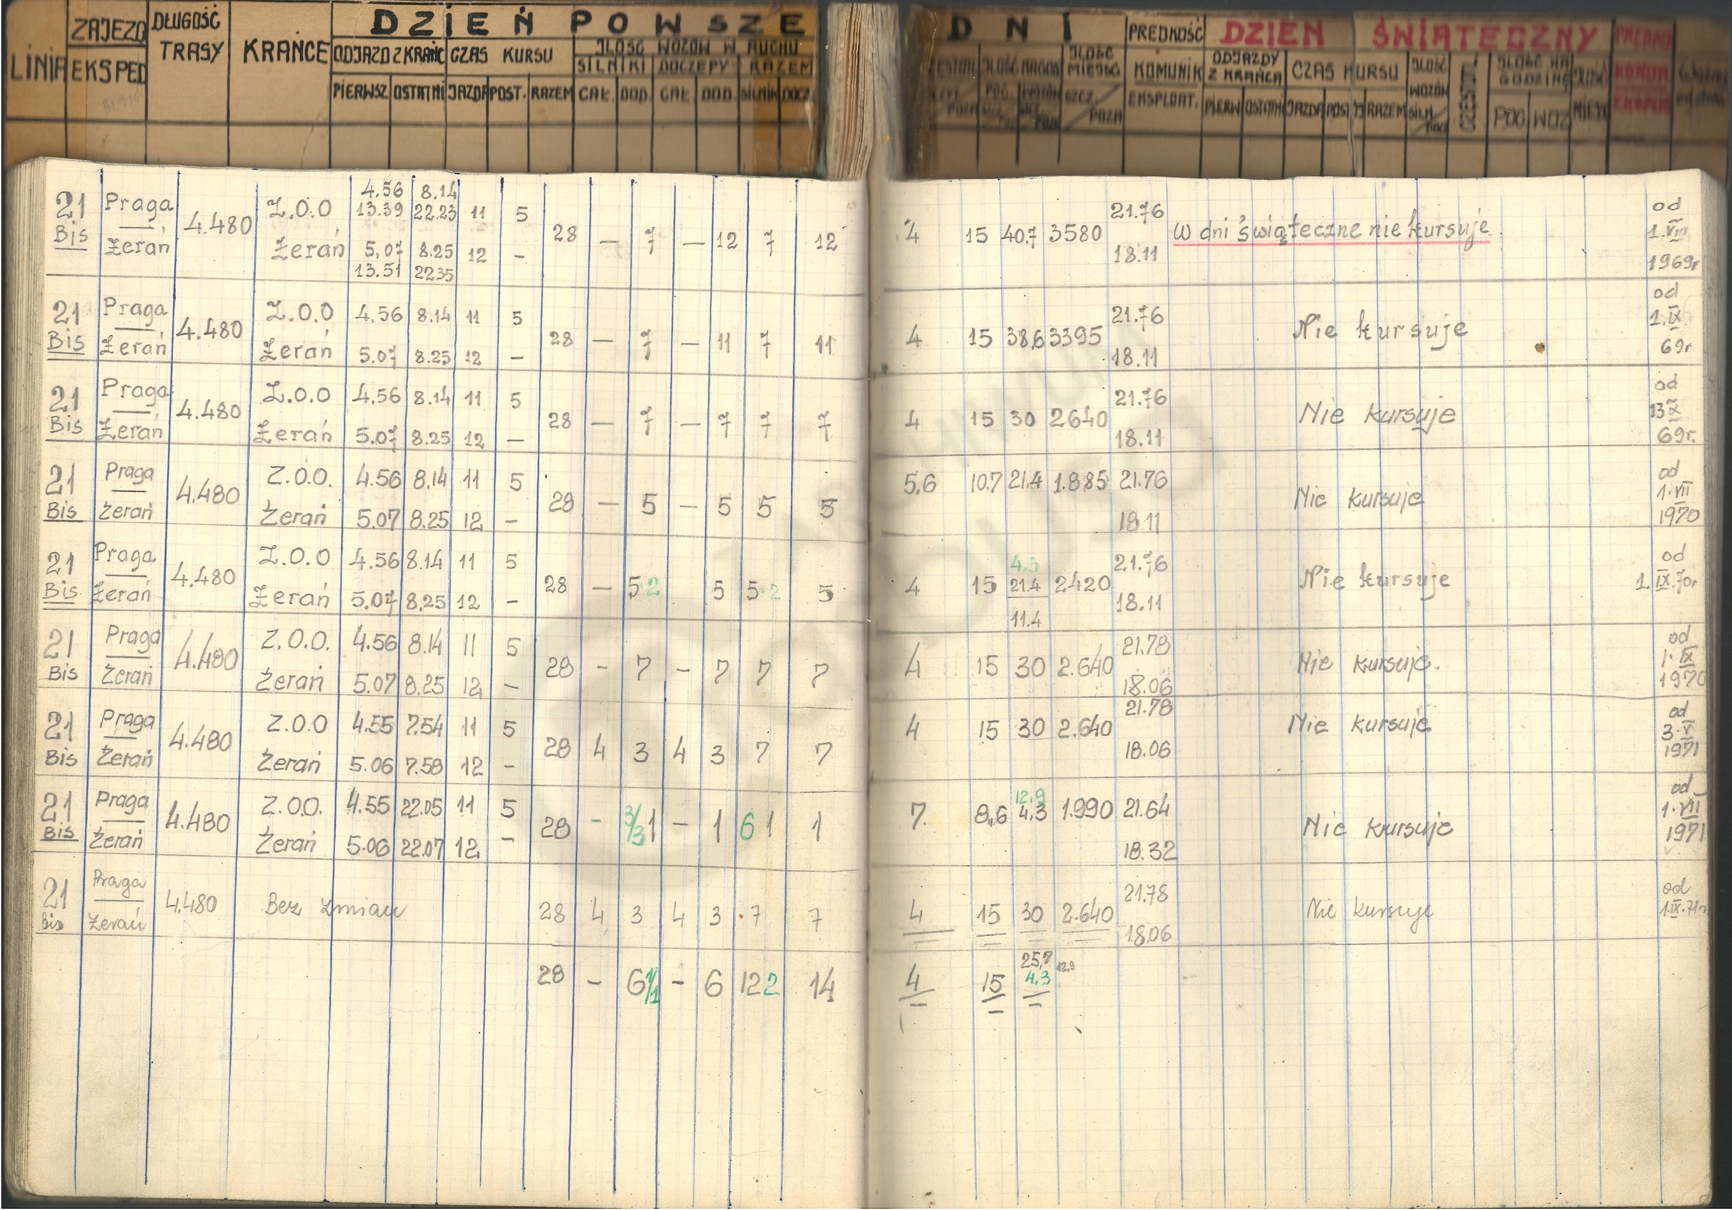 DZIEŃ POWSZEDNI
DZIEŃ ŚWIĄTECZNY
LINIA ZAJEZD EKSPED DŁUGOŚĆ TRASY KRAŃCE
ODJAZD Z KRAŃC CZAS KURSU ILOŚĆ WOZÓW W RUCHU
SILNIKI DOCZEPY RAZEM
PIERWSZ OSTATNI JAZDA POST. RAZEM CAŁ. DOD. CAŁ. DOD. SILNIK DOCZ.
ILOŚĆ MIEJSC PRĘDKOŚĆ KOMUNIK EKSPLOAT.
ODJAZDY Z KRAŃCA CZAS KURSU ILOŚĆ WOZÓW ILOŚĆ NA GODZINĘ
PIERW OSTATN JAZDA POST RAZEM POC WOZ
21 Praga 4.480 Z.O.O 4.56 8.14
13.39 22.23 11 5
Bis Żerań Żerań 5.07 8.25 12 –
13.51 2235
28 – 7 – 12 7 12
4 15 40.7 3580 21.76 18.11 W dni świąteczne nie kursuje od 1.VIII 1969r
21 Praga 4.480 Z.O.O 4.56 8.14 11 5
Bis Żerań Żerań 5.07 8.25 12 –
28 – 7 – 11 7 11
4 15 38,6 3395 21.76 18.11 Nie kursuje od 1.IX 69r
21 Praga 4.480 Z.O.O 4.56 8.14 11 5
Bis Żerań Żerań 5.07 8.25 12 –
28 – 7 – 7 7 7
4 15 30 2640 21.76 18.11 Nie kursuje od 13 X 69r.
21 Praga 4.480 Z.O.O. 4.56 8.14 11 5
Bis Żerań Żerań 5.07 8.25 12 –
28 – 5 – 5 5 5
5,6 10.7 21.4 1.885 21.76 18.11 Nie kursuje od 1.VII 1970
21 Praga 4.480 Z.O.O 4.56 8.14 11 5
Bis Żerań Żerań 5.07 8.25 12 –
28 – 5 2 5 5 2 5
4 15 4.3 21.4 11.4 2420 21.76 18.11 Nie kursuje od 1.IX.70r
21 Praga 4.480 Z.O.O. 4.56 8.14 11 5
Bis Żerań Żerań 5.07 8.25 12 –
28 – 7 – 7 7 7
4 15 30 2.640 21.78 18.06 Nie kursuje. od 1.IX 1970
21 Praga 4.480 Z.O.O 4.55 7.54 11 5
Bis Żerań Żerań 5.06 7.58 12 –
28 4 3 4 3 7 7
4 15 30 2.640 21.78 18.06 Nie kursuje od 3.V 1971
21 Praga 4.480 Z.O.O. 4.55 22.05 11 5
Bis Żerań Żerań 5.06 22.07 12 –
28 – 3/3 1 – 1 6 1 1
7. 8,6 12.9 4.3 1.990 21.64 18.32 Nie kursuje od 1.VII 1971
21 Praga 4.480 Bez zmian
Bis Żerań
28 4 3 4 3 7 7
4 15 30 2.640 21.78 18.06 Nie kursuje od 1.IX.71r
28 – 6 1/1 – 6 12 2 14
4 15 25,7 4.3 12,9